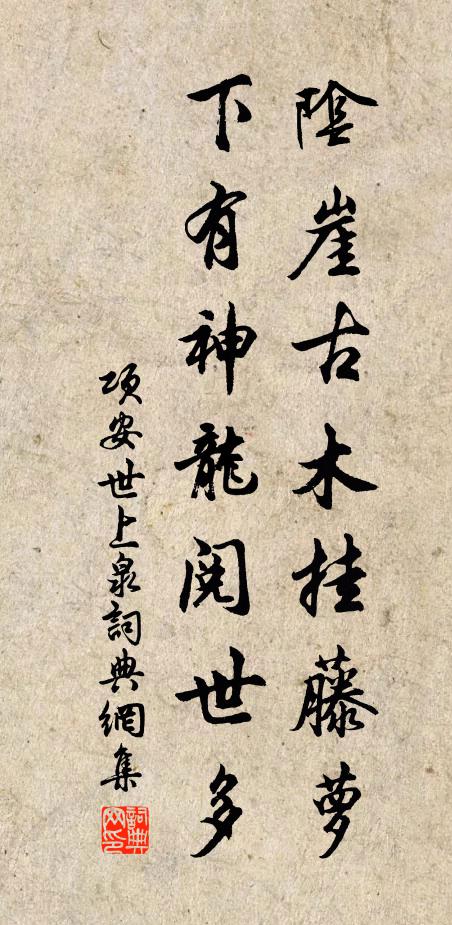 陰崖古木挂藤蘿
下有神龍閱世多
項安世上泉詞典網集
詞典网印